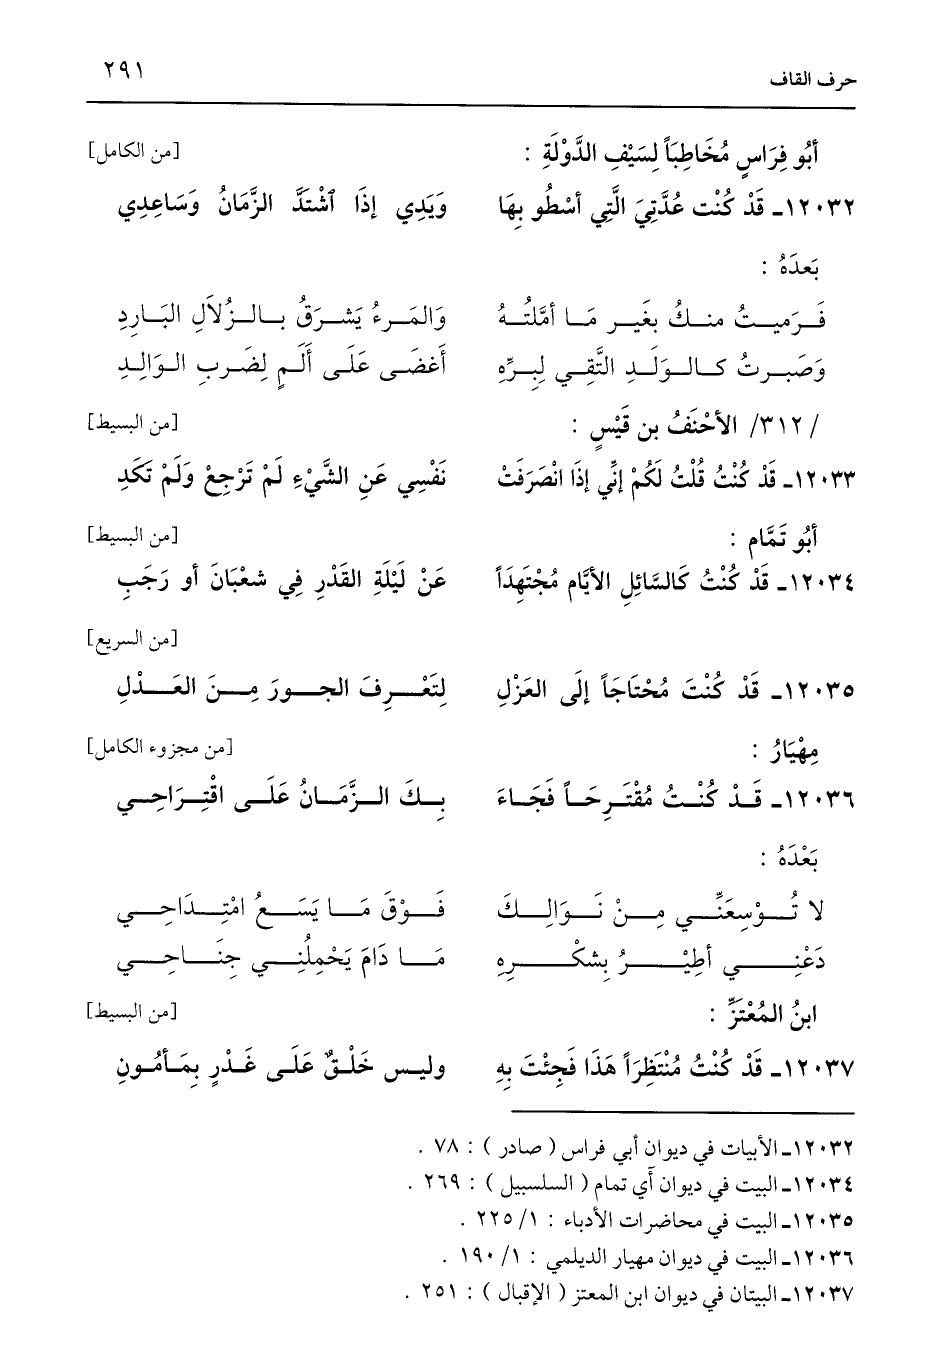 حرف القاف ٢٩١
أبُو فِرَاسٍ مُخَاطِبَاً لِسَيْفِ الدَّوْلَةِ : [من الكامل]
١٢٠٣٢ـ قَدْ كُنْت عُدَّتِيَ الَّتِي أسْطُو بِهَا وَيَدِي إذَا اشْتَدَّ الزَّمَانُ وَسَاعِدِي
بَعدَهُ :
فَرَميتُ منكُ بغَير مَا أمَّلتُهُ وَالمَرءُ يَشرَقُ بالزُلاَلِ البَاردِ
وَصَبرتُ كالوَلَدِ التَّقِي لِبِرِّهِ أَغضَى عَلَى أَلَمٍ لِضَربِ الوَالِدِ
/ ٣١٢/ الأحْنَفُ بن قَيْسٍ : [من البسيط]
١٢٠٣٣ـ قَدْ كُنْتُ قُلْتُ لَكُمْ إنِّي إذَا انْصَرَفَتْ نَفْسِي عَنِ الشَّيْءِ لَمْ تَرْجِعْ وَلَمْ تَكَدِ
أبُو تَمَّام : [من البسيط]
١٢٠٣٤ـ قَدْ كُنْتُ كَالسَّائِلِ الأيَّام مُجْتَهِدَاً عَنْ لَيْلَةِ القَدْرِ فِي شعْبَانَ أو رَجَبِ
[من السريع]
١٢٠٣٥ـ قَدْ كُنْتَ مُحْتَاجَاً إلَى العَزْلِ لِتَعْرِفَ الجورَ مِنَ العَدْلِ
مِهْيَارُ : [من مجزوء الكامل]
١٢٠٣٦ـ قَدْ كُنْتُ مُقْتَرِحَاً فَجَاءَ بِكَ الزَّمَانُ عَلَى اقْتِرَاحِي
بَعْدَهُ :
لا تُوْسِعَنِّي مِنْ نَوَالِكَ فَوْقَ مَا يَسَعُ امْتِدَاحِي
دَعْنِي أطِيْرُ بِشكْرِهِ مَا دَامَ يَحْمِلُنِي جِنَاحِي
ابنُ المُعْتَزِّ : [من البسيط]
١٢٠٣٧ـ قَدْ كُنْتُ مُنْتَظِرَاً هَذَا فَجِئْتَ بِهِ وليس خَلْقٌ عَلَى غَدْرٍ بِمَأمُونِ
١٢٠٣٢ـ الأبيات في ديوان أبي فراس ( صادر ) : ٧٨ .
١٢٠٣٤ـ البيت في ديوان أي تمام ( السلسبيل ) : ٢٦٩ .
١٢٠٣٥ـ البيت في محاضرات الأدباء : ١/ ٢٢٥ .
١٢٠٣٦ـ البيت في ديوان مهيار الديلمي : ١/ ١٩٠ .
١٢٠٣٧ـ البيتان في ديوان ابن المعتز ( الإقبال ) : ٢٥١ .